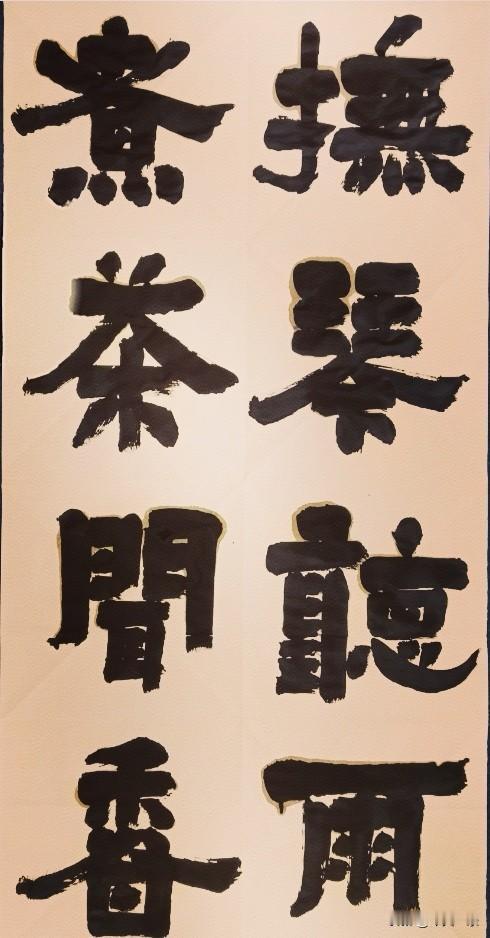 撫琴聽雨
煮茶聞香